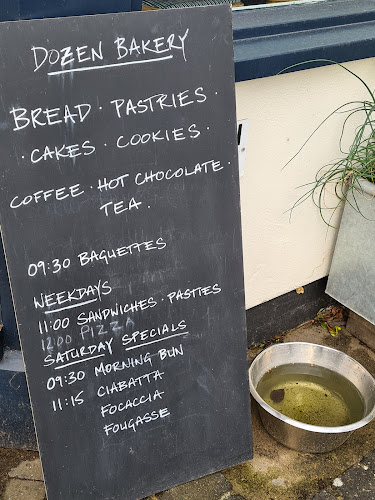 DOZEN BAKERY
BREAD · PASTRIES ·
· CAKES · COOKIES ·
COFFEE · HOT CHOCOLATE ·
TEA .
09:30 BAGUETTES
WEEKDAYS
11:00 SANDWICHES · PASTIES
12:00 PIZZA
SATURDAY SPECIALS
09:30 MORNING BUN
11:15 CIABATTA
FOCACCIA
FOUGASSE